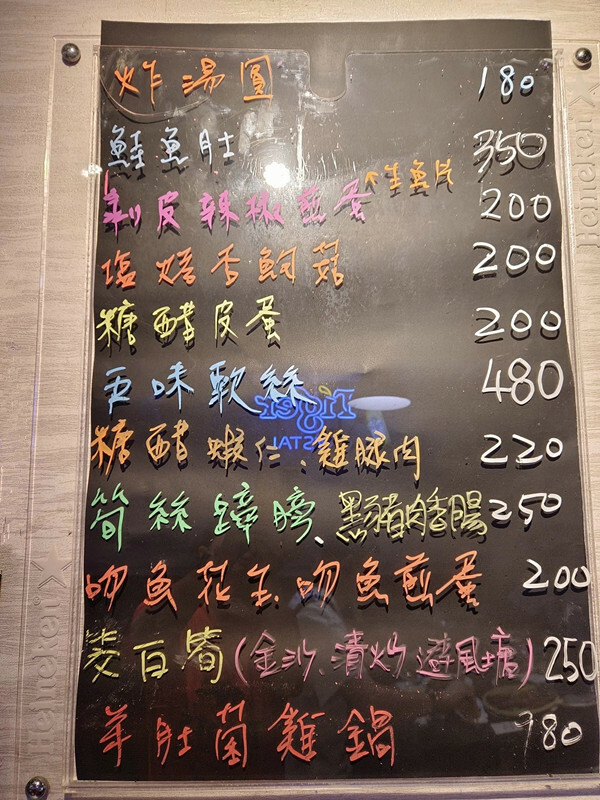 炸湯圓 180
鮭魚肚 350
剝皮辣椒煎蛋 ↖生魚片 200
塩焗杏鮑菇 200
糖醋皮蛋 200
五味軟絲 480
糖醋蝦仁、雞腿肉 220
筍絲蹄膀、黑豬肉香腸 250
吻魚花生 吻魚煎蛋 200
茭白筍(金沙、清炒、避風塘) 250
羊肚菌雞鍋 980
Tiger
CRYSTAL
Heineken
Heineken